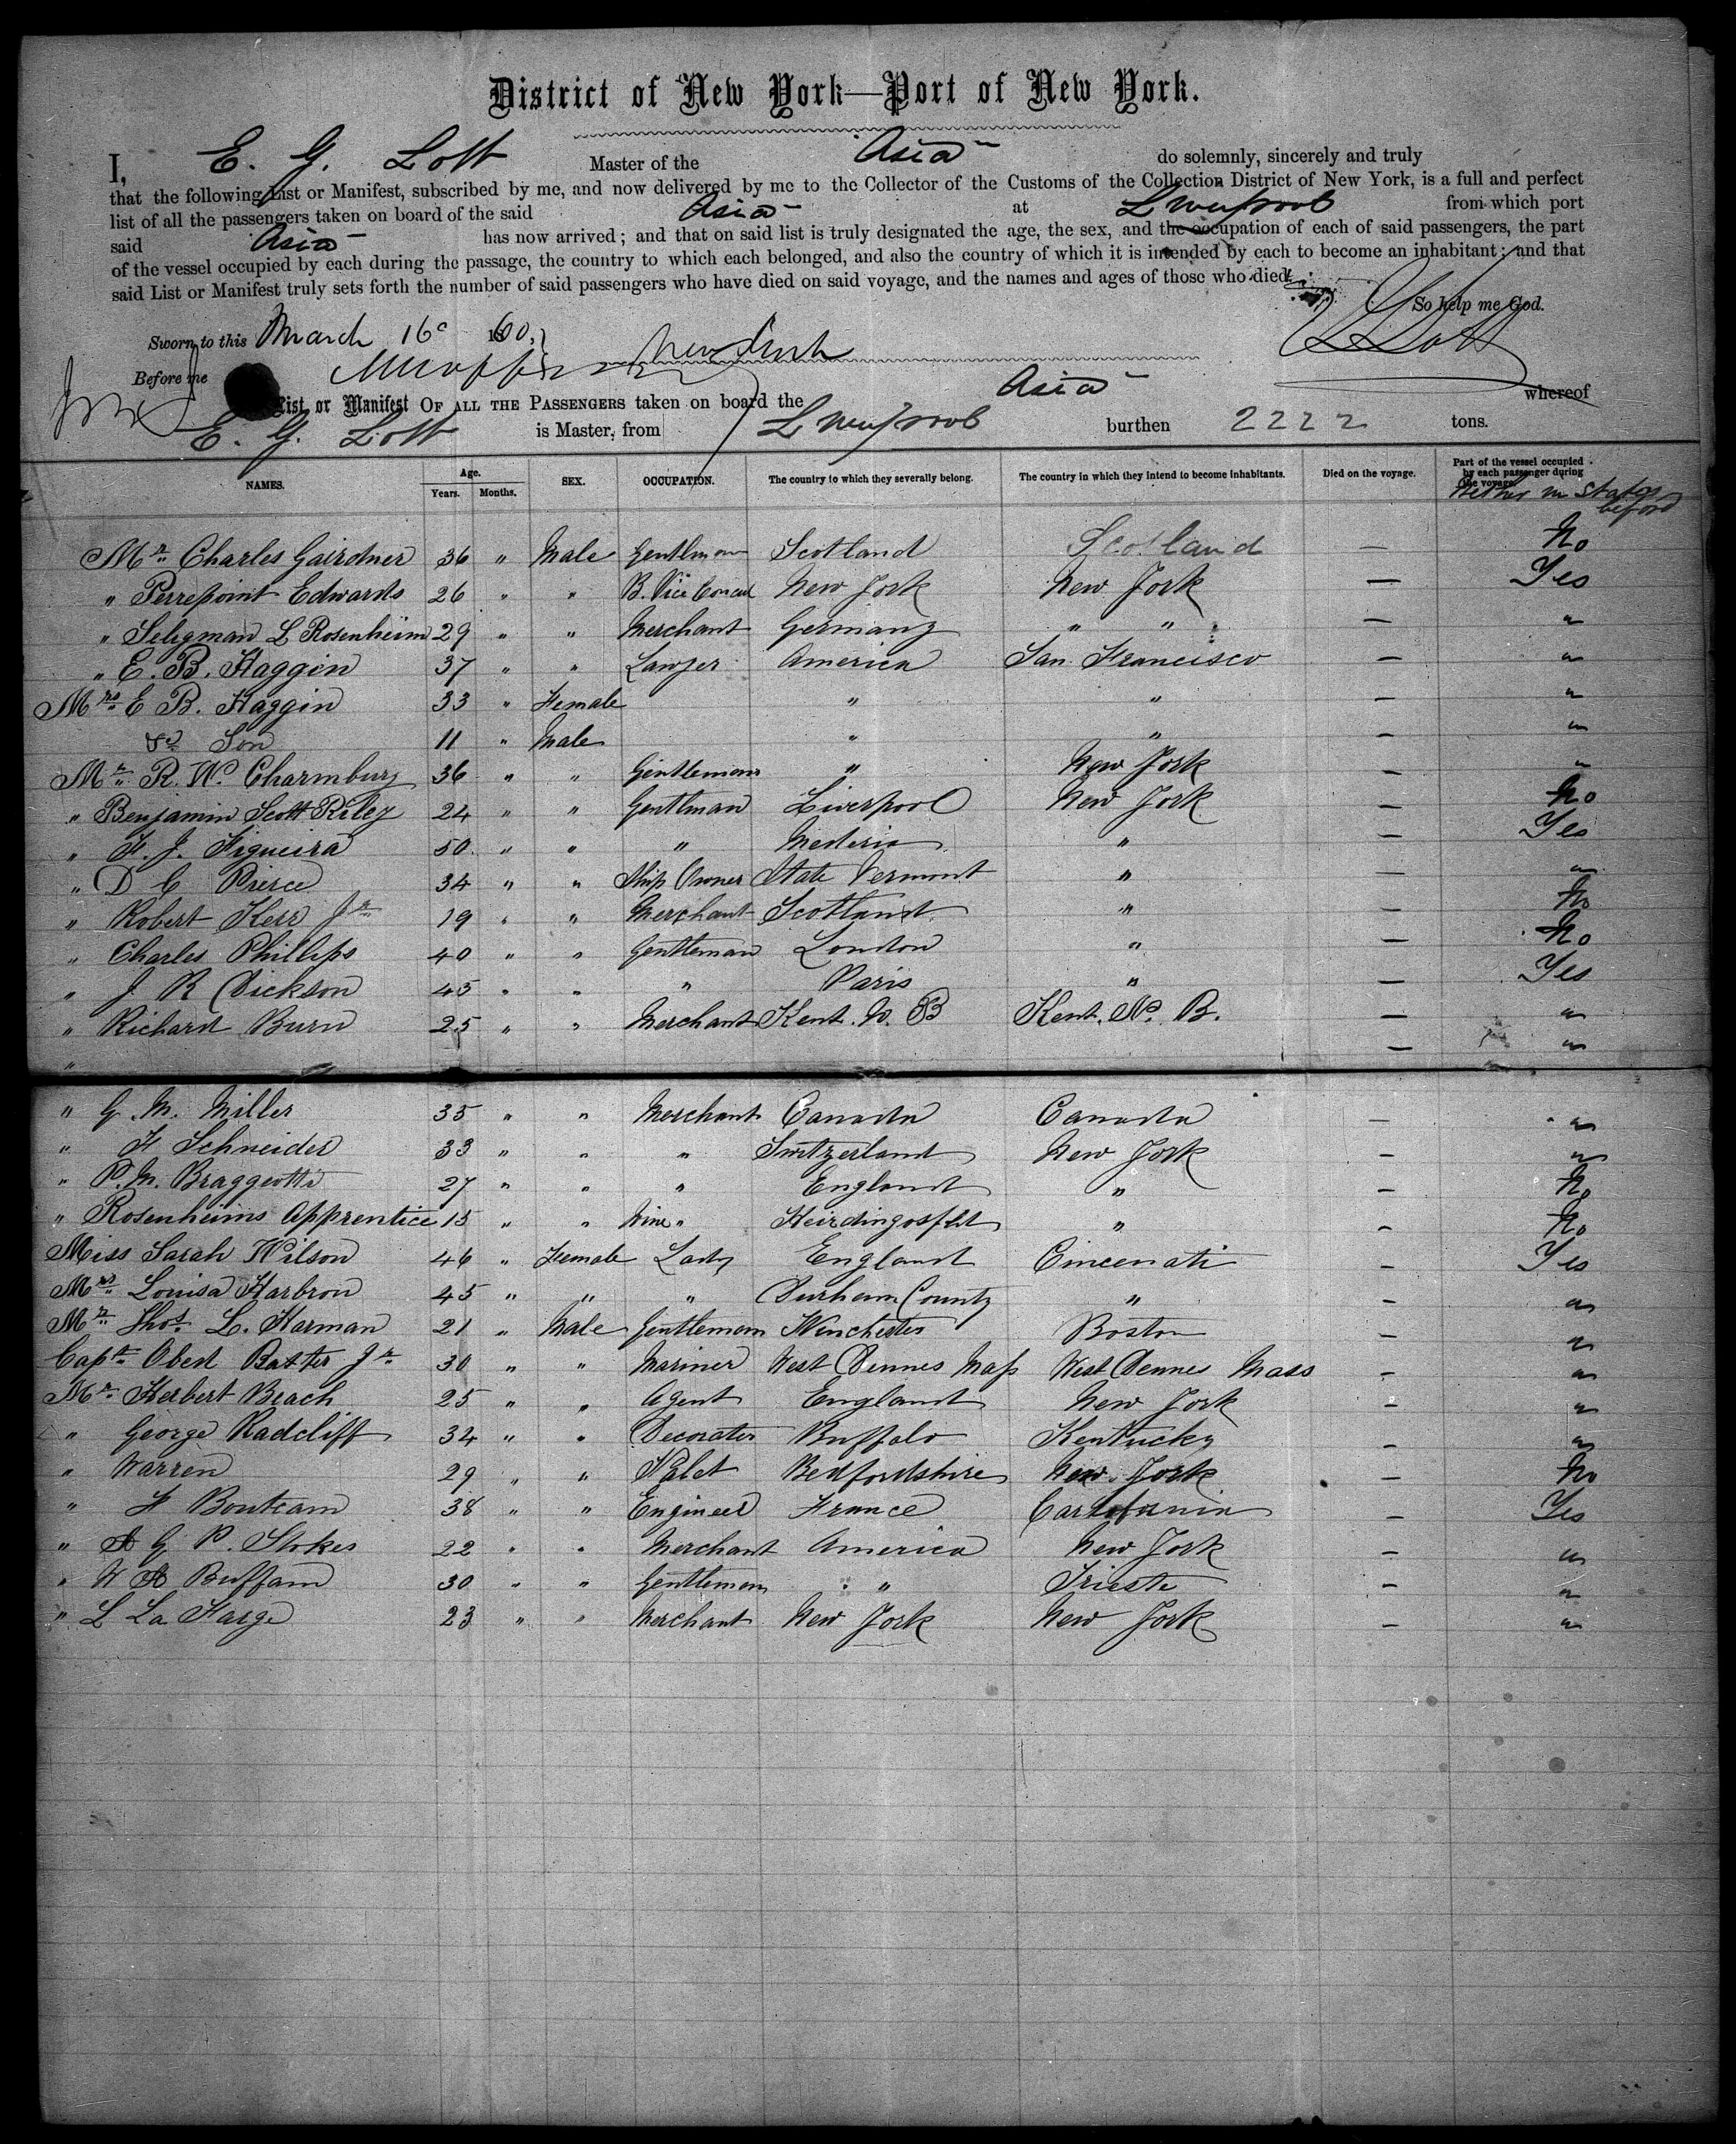 District of New York—Port of New York.
I, E. G. Lott Master of the Asia do solemnly, sincerely and truly
that the following List or Manifest, subscribed by me, and now delivered by me to the Collector of the Customs of the Collection District of New York, is a full and perfect
list of all the passengers taken on board of the said Asia at Liverpool from which port
said Asia has now arrived; and that on said list is truly designated the age, the sex, and the occupation of each of said passengers, the part
of the vessel occupied by each during the passage, the country to which each belonged, and also the country of which it is intended by each to become an inhabitant; and that
said List or Manifest truly sets forth the number of said passengers who have died on said voyage, and the names and ages of those who died.
So help me God.
Sworn to this March 16 1860. E G Lott
Before me
List or Manifest OF ALL THE PASSENGERS taken on board the Asia whereof
E. G. Lott is Master, from Liverpool burthen 2222 tons.
NAMES. Age. Years. Months. SEX. OCCUPATION. The country to which they severally belong. The country in which they intend to become inhabitants. Died on the voyage. Part of the vessel occupied by each passenger during the voyage.
before
Mr. Charles Gairdner 36 " Male Gentleman Scotland Scotland — No
" Perrepoint Edwards 26 " " B. Vice Consul New York New York — Yes
" Seligman L Rosenheim 29 " " Merchant Germany " " — "
" E. B. Haggin 37 " " Lawyer America San Francisco — "
Mrs. E B. Haggin 33 " Female " " — "
& Son 11 " Male " " — "
Mr. R. W. Charmbury 36 " " Gentleman " New York — "
" Benjamin Scott Riley 24 " " Gentlman Liverpool New York — No
" F. J. Figueira 50 " " " Mederia " — Yes
" D C Pierce 34 " " Ship Owner State Vermont " — "
" Robert Kerr Jr. 19 " " Merchant Scotland " — No
" Charles Phillips 40 " " Gentleman London " — No
" J R Dickson 45 " " " Paris " — Yes
" Richard Burn 25 " " Merchant Kent. N. B Kent. N. B. — "
" — "
" G. M. Miller 35 " " Merchant Canada Canada — "
" F Schneider 33 " " " Switzerland New York — "
" P. M. Braggiotti 27 " " " England " — No
" Rosenheims Apprentice 15 " " Wine " " — No
Miss Sarah Wilson 46 " Female Lady England Cincenati — Yes
Mrs. Louisa Harbron 45 " " " Durham County " — "
Mr. Thos. L. Harman 21 " Male Gentleman Winchester Boston — "
Capt. Obed Baxter Jr. 30 " " Mariner West Dennes Mass West Dennes Mass — "
Mr. Herbert Beach 25 " " Agent England New York — "
" George Radcliff 34 " " Decorater Buffalo Kentucky — "
" Warren 29 " " Valet Bedfordshire New York — No
" F Bontcam 38 " " Engineer France — Yes
" A G P. Stokes 22 " " Merchant America New York — "
" W A Buffam 30 " " Gentleman " Trieste — "
" L La Farge 23 " " Merchant New York New York — "